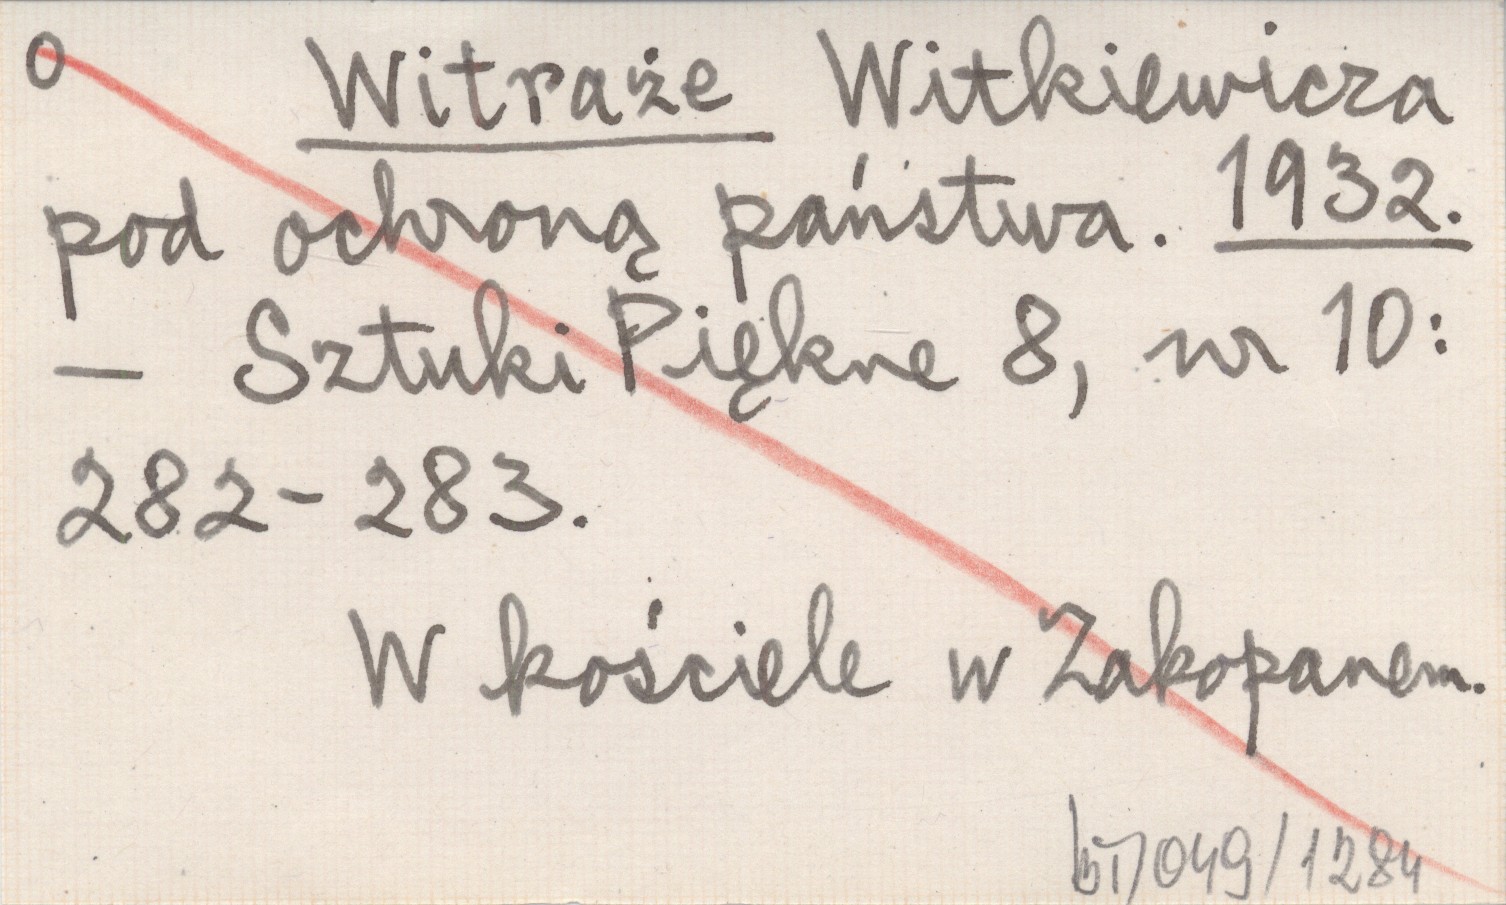 o Witraże Witkiewicza
pod ochroną państwa. 1932.
— Sztuki Piękne 8, nr 10:
282-283.
W kościele w Zakopanem.
049/1284